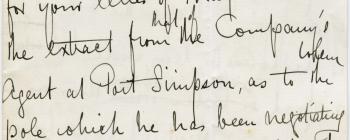 for your letter of
the extract from that of the Company's
Agent at Port Simpson, as to the totem
pole which he has been negotiating